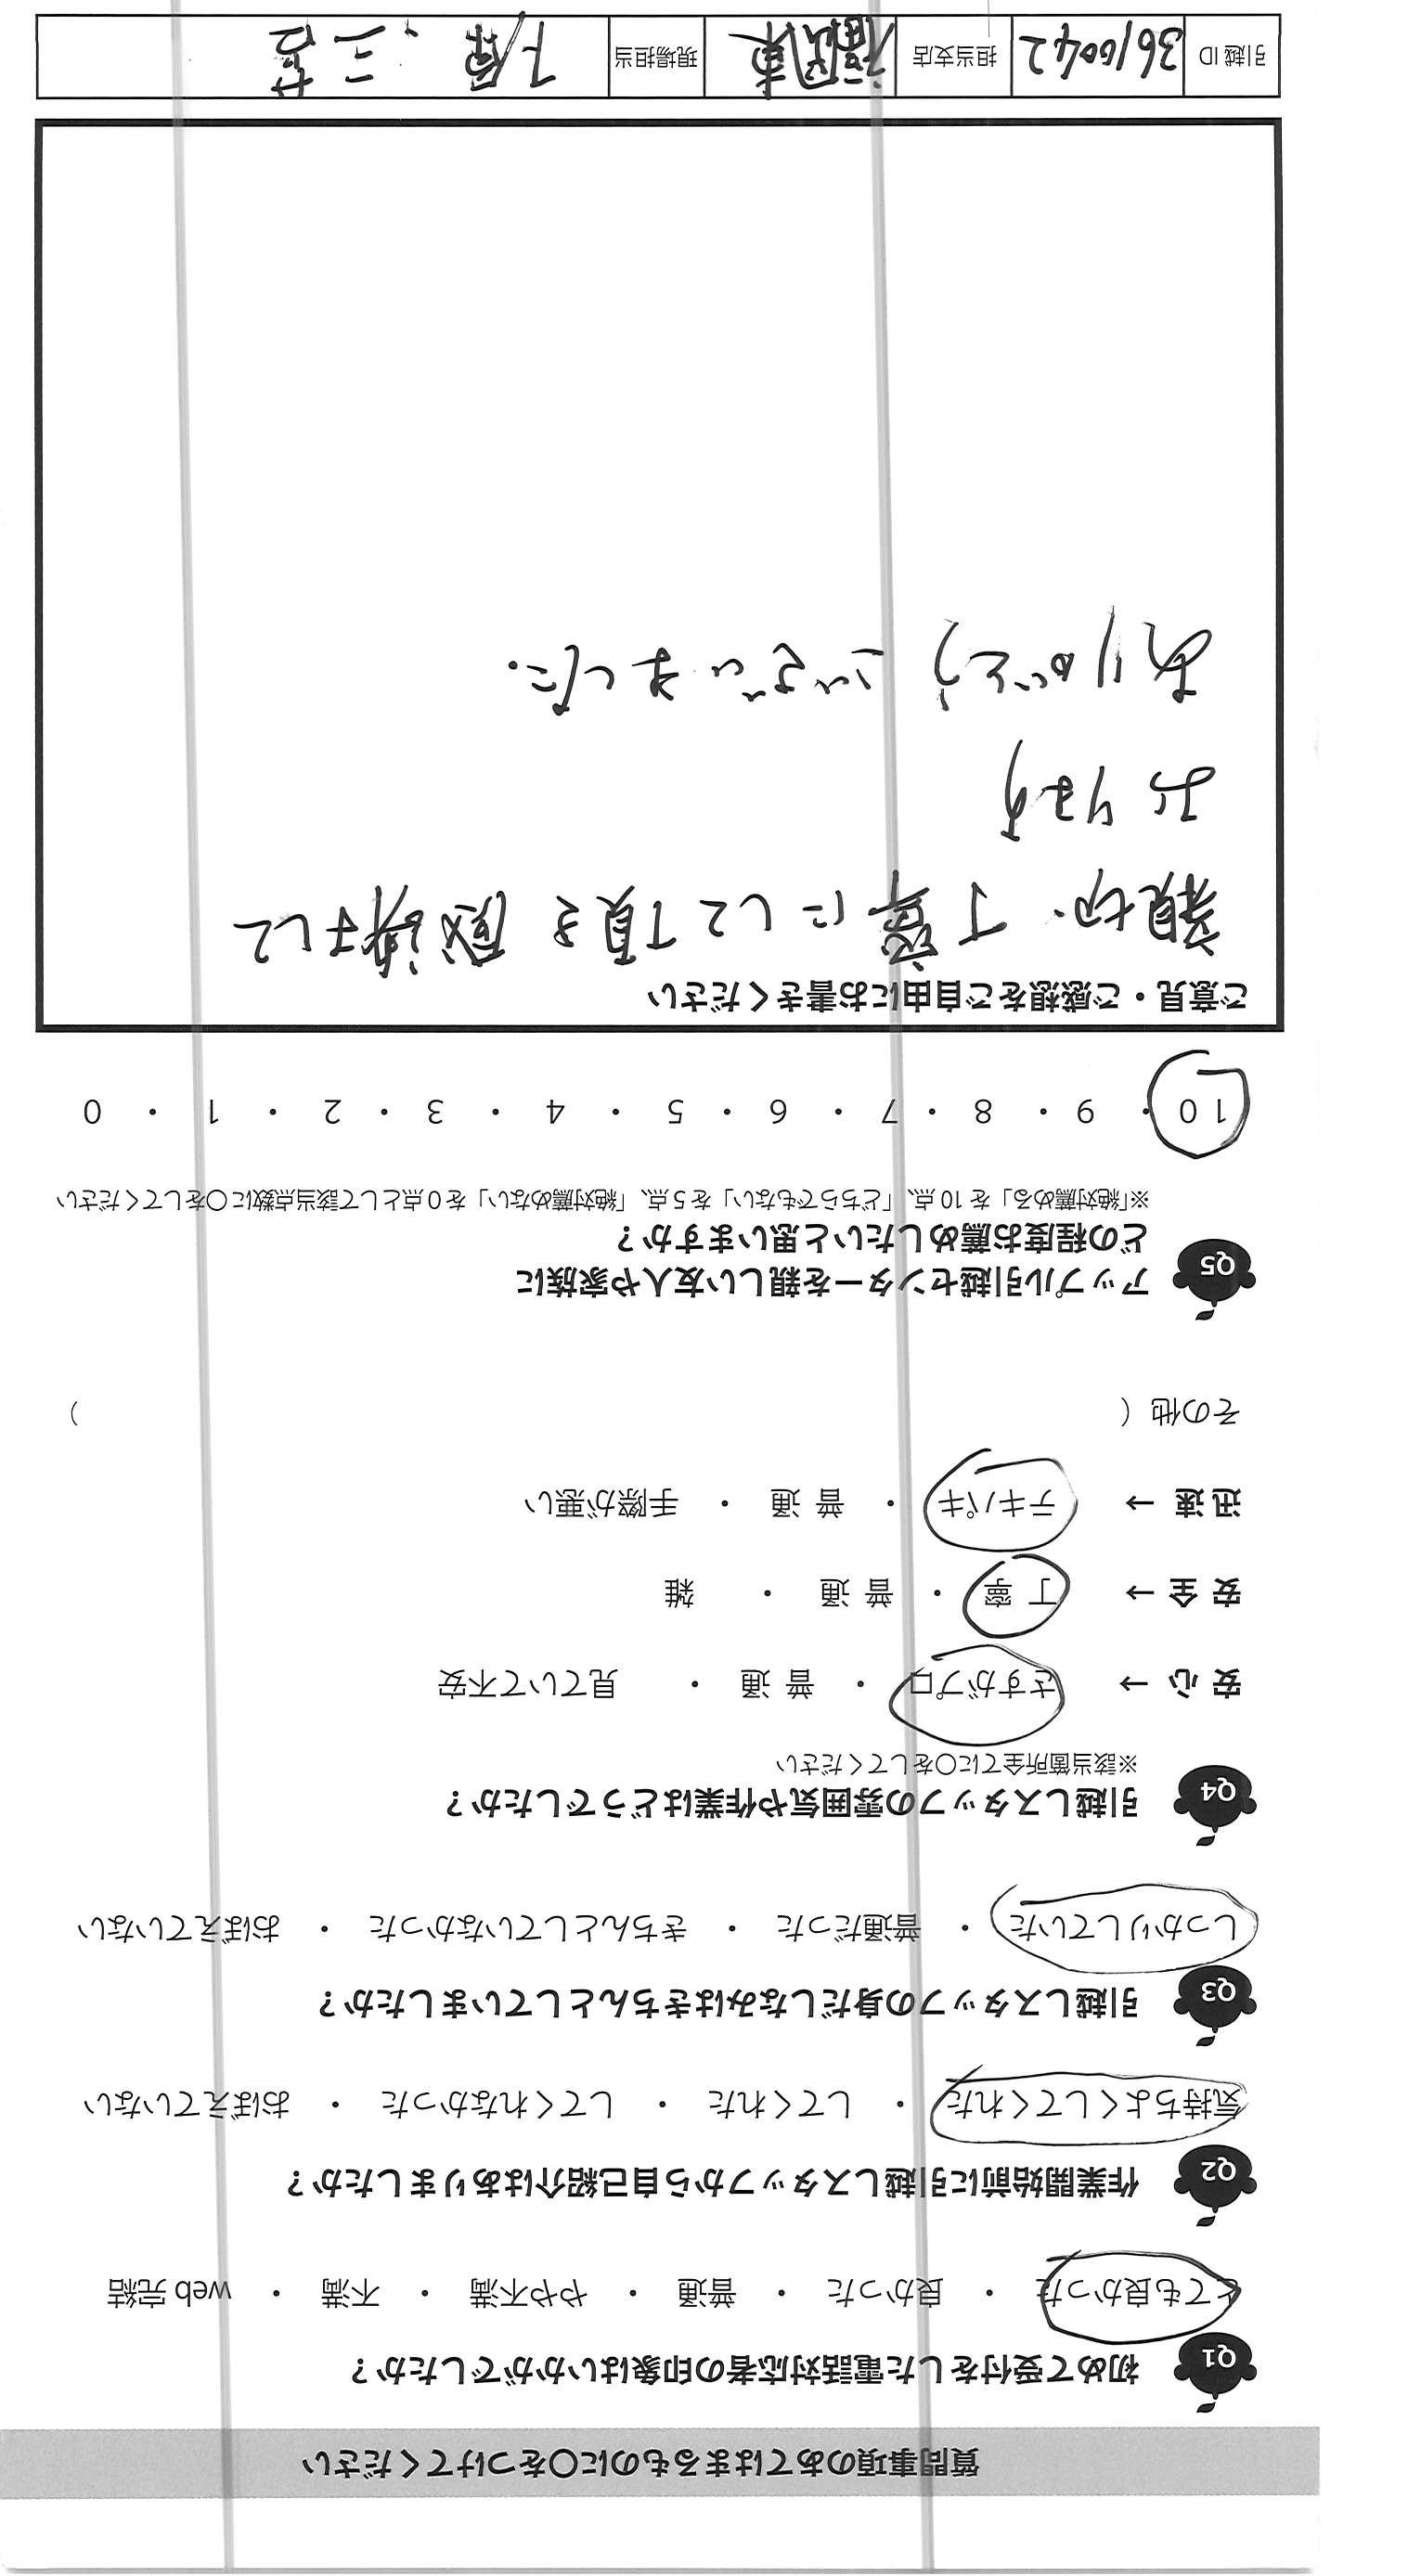 質問事項のあてはまるものに〇をつけてください
Q1 初めて受付をした電話対応者の印象はいかがでしたか？
とても良かった ・ 良かった ・ 普通 ・ やや不満 ・ 不満 ・ web 完結
Q2 作業開始前に引越しスタッフから自己紹介はありましたか？
気持ちよくしてくれた ・ してくれた ・ してくれなかった ・ おぼえていない
Q3 引越しスタッフの身だしなみはきちんとしていましたか？
しっかりしていた ・ 普通だった ・ きちんとしていなかった ・ おぼえていない
Q4 引越しスタッフの雰囲気や作業はどうでしたか？
※該当箇所全てに〇をしてください
安 心 → さすがプロ ・ 普 通 ・ 見ていて不安
安 全 → 丁 寧 ・ 普 通 ・ 雑
迅 速 → テキパキ ・ 普 通 ・ 手際が悪い
その他（ ）
Q5 アップル引越センターを親しい友人や家族に
どの程度お薦めしたいと思いますか？
※「絶対薦める」を 10 点、「どちらでもない」を 5 点、「絶対薦めない」を 0 点として該当点数に〇をしてください
10 ・ 9 ・ 8 ・ 7 ・ 6 ・ 5 ・ 4 ・ 3 ・ 2 ・ 1 ・ 0
ご意見・ご感想をご自由にお書きください
親切、丁寧にして頂き感謝して
おります
ありがとうございました.
引越 ID 3610042 担当支店 福岡東 現場担当 下原、三苫